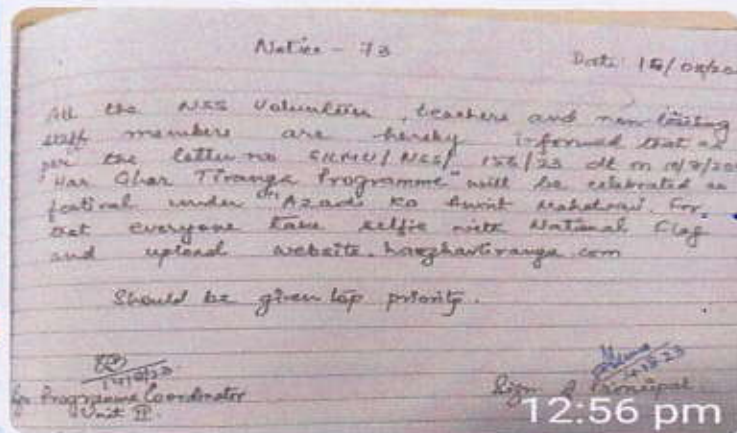 Notice - 73
Date: 15/08/20
All the NSS Volunteers, teachers and non-teaching
staff members are hereby informed that as
per the letter no SKMU/NSS/ 158/23 dt on
"Har Ghar Tiranga Programme" will be celebrated as
festival under "Azadi Ka Amrit Mahotsav. For
everyone take selfie with National Flag
and upload website. harghartiranga.com
Should be given top priority.
14/8/23
14.8.23
Programme Coordinator
Sign of Principal
Unit II
12:56 pm